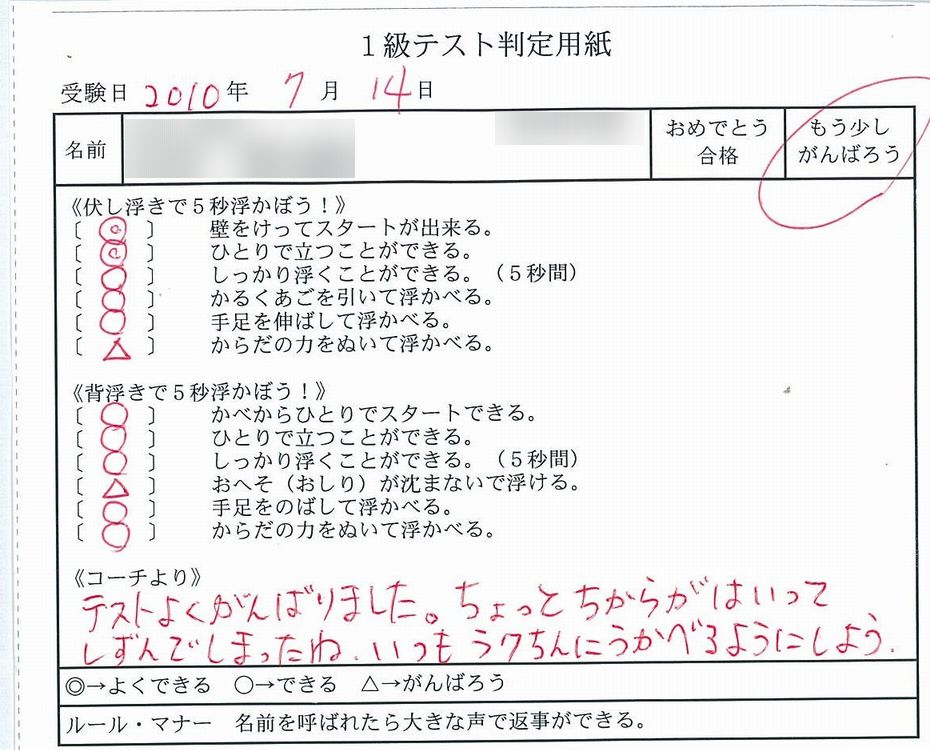 1級テスト判定用紙
受験日 2010年 7月 14日
名前 おめでとう合格 もう少しがんばろう
《伏し浮きで5秒浮かぼう!》
〔 ◎ 〕 壁をけってスタートが出来る。
〔 ◎ 〕 ひとりで立つことができる。
〔 ○ 〕 しっかり浮くことができる。(5秒間)
〔 ○ 〕 かるくあごを引いて浮かべる。
〔 ○ 〕 手足を伸ばして浮かべる。
〔 △ 〕 からだの力をぬいて浮かべる。
《背浮きで5秒浮かぼう!》
〔 ○ 〕 かべからひとりでスタートできる。
〔 ○ 〕 ひとりで立つことができる。
〔 ○ 〕 しっかり浮くことができる。(5秒間)
〔 △ 〕 おへそ(おしり)が沈まないで浮ける。
〔 ○ 〕 手足をのばして浮かべる。
〔 ○ 〕 からだの力をぬいて浮かべる。
《コーチより》
テストよくがんばりました。ちょっとちからがはいって
しずんでしまったね、いつもラクちんにうかべるようにしよう。
◎→よくできる ○→できる △→がんばろう
ルール・マナー 名前を呼ばれたら大きな声で返事ができる。